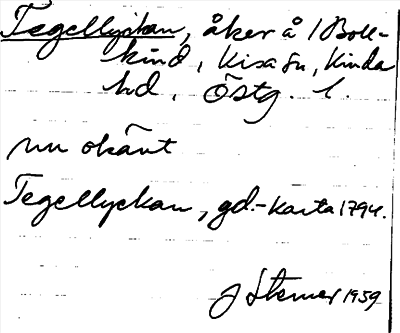 Tegellyckan, åker å /Boll-
kind, Kisa sn, Kinda
hd, Östg. l.
nu okänt
Tegellyckan, gd.-karta 1794.
J Sterner 1959